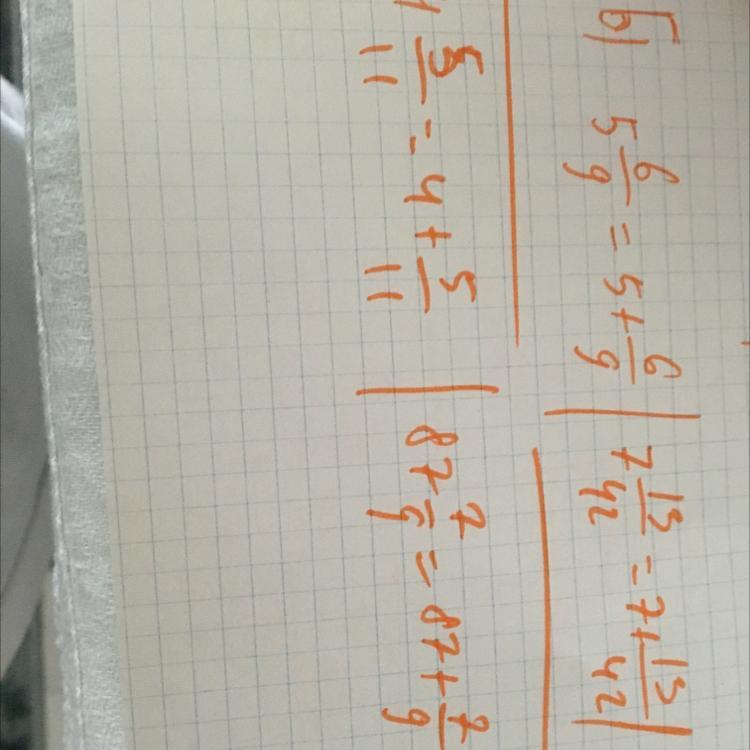 б) 5 6/9 = 5 + 6/9 | 7 13/42 = 7 + 13/42 |
4 5/11 = 4 + 5/11 | 87 7/9 = 87 + 7/9